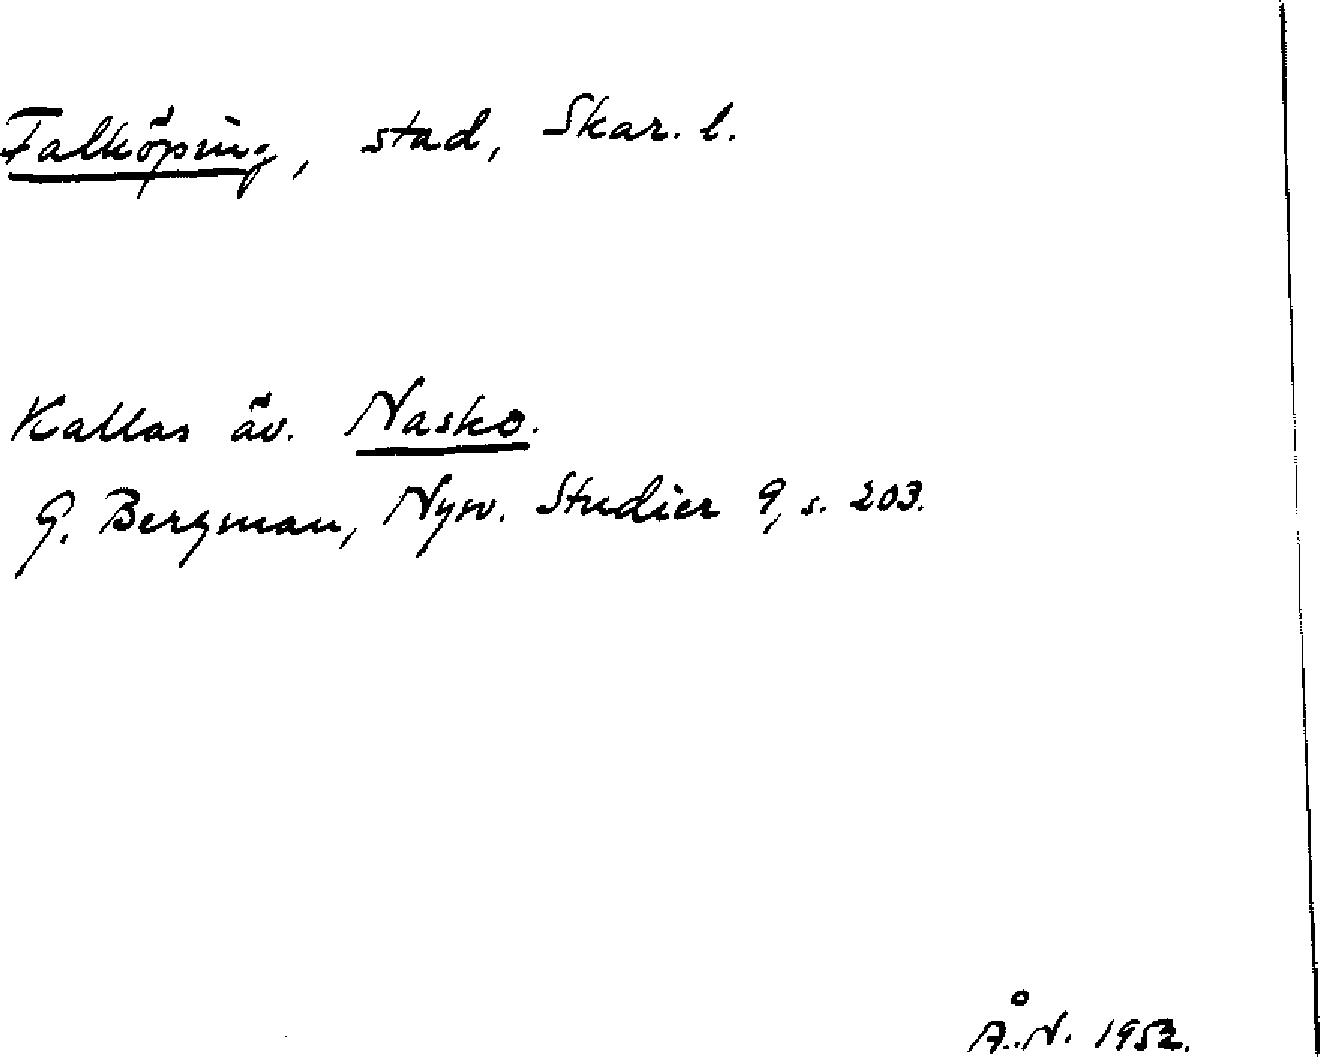 Falköping, stad, Skar. l.
Kallas äv. Nasko.
G. Bergman, Nysv. Studier 9, s. 203.
Å.N. 1952.